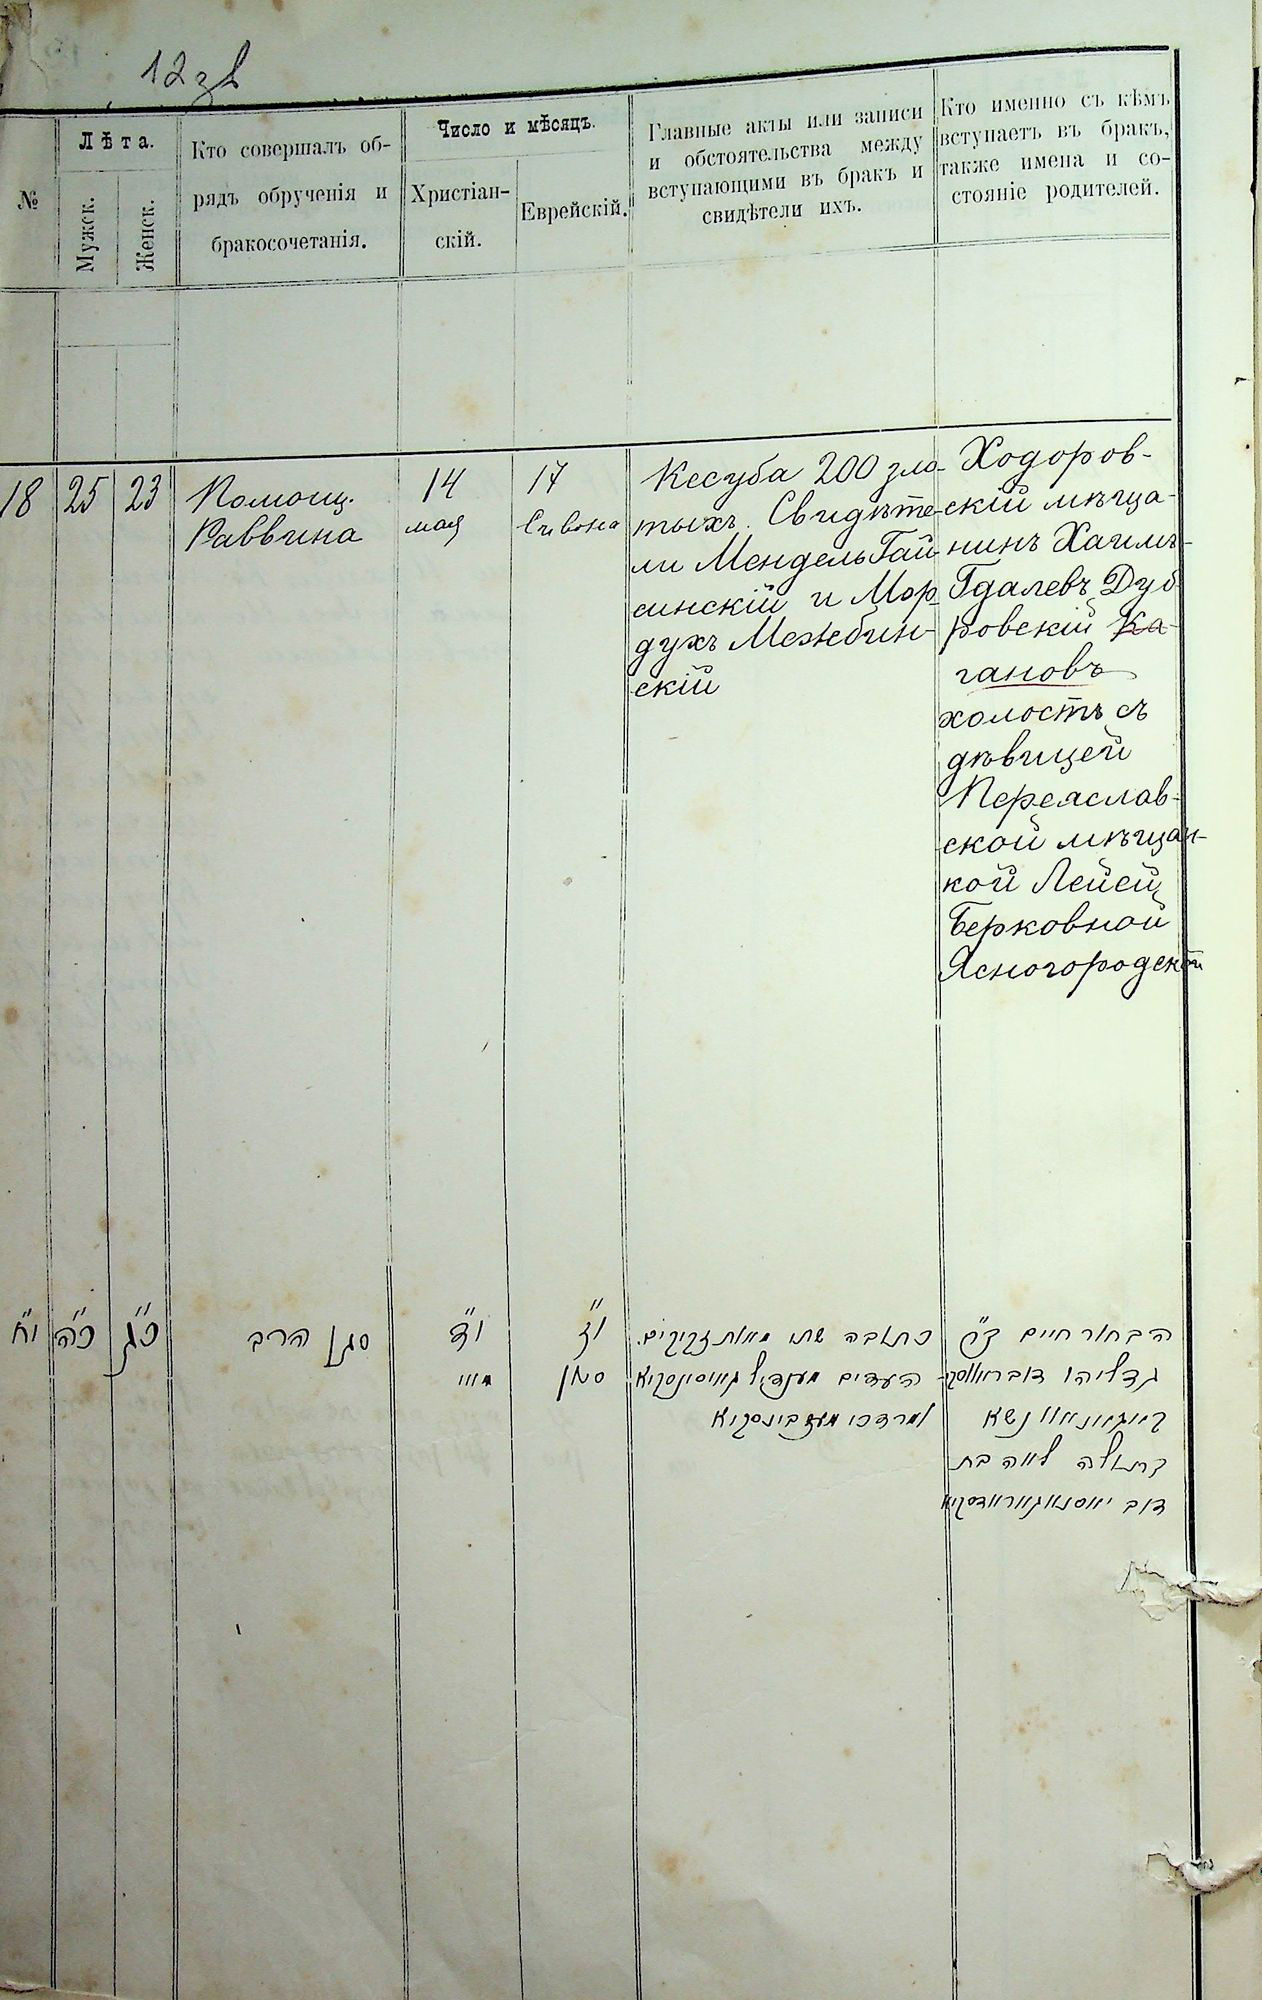 12 зв
№
Лѣта.
Мужск.
Женск.
Кто совершалъ об-
рядъ обрученія и
бракосочетанія.
Число и мѣсяцъ.
Христіан-
скій.
Еврейскій.
Главные акты или записи
и обстоятельства между
вступающими въ бракъ и
свидѣтели ихъ.
Кто именно съ кѣмъ
вступаетъ въ бракъ,
также имена и со-
стояніе родителей.
18
25
23
Помощ.
Раввина
14
мая
17
Сивона
Кесуба 200 зло-
тыхъ. Свидѣте-
ли Мендель Гай-
синскій и Мор-
духъ Межбин-
скій
Ходоров-
скій мѣща-
нинъ Хаимъ-
Гдалевъ Дуб
ровскій Ка-
гановъ
холостъ съ
дѣвицей
Переяслав-
ской мѣщан-
кой Лейей
Берковной
Ясногородской
י״ח
כ״ה
כ״ג
סגן הרב
י״ד
מאי
י״ז
סיון
כתובה שתי מאות זקוקים.
העדים מענדיל גאיסינסקיא
ומרדכי מעזבינסקיא
הבחור חיים ב״ר
גדליהו דובראווסקי
קאגאנאוו נשא
בתולה לאה בת
דוב יאסנאגאראדסקיא